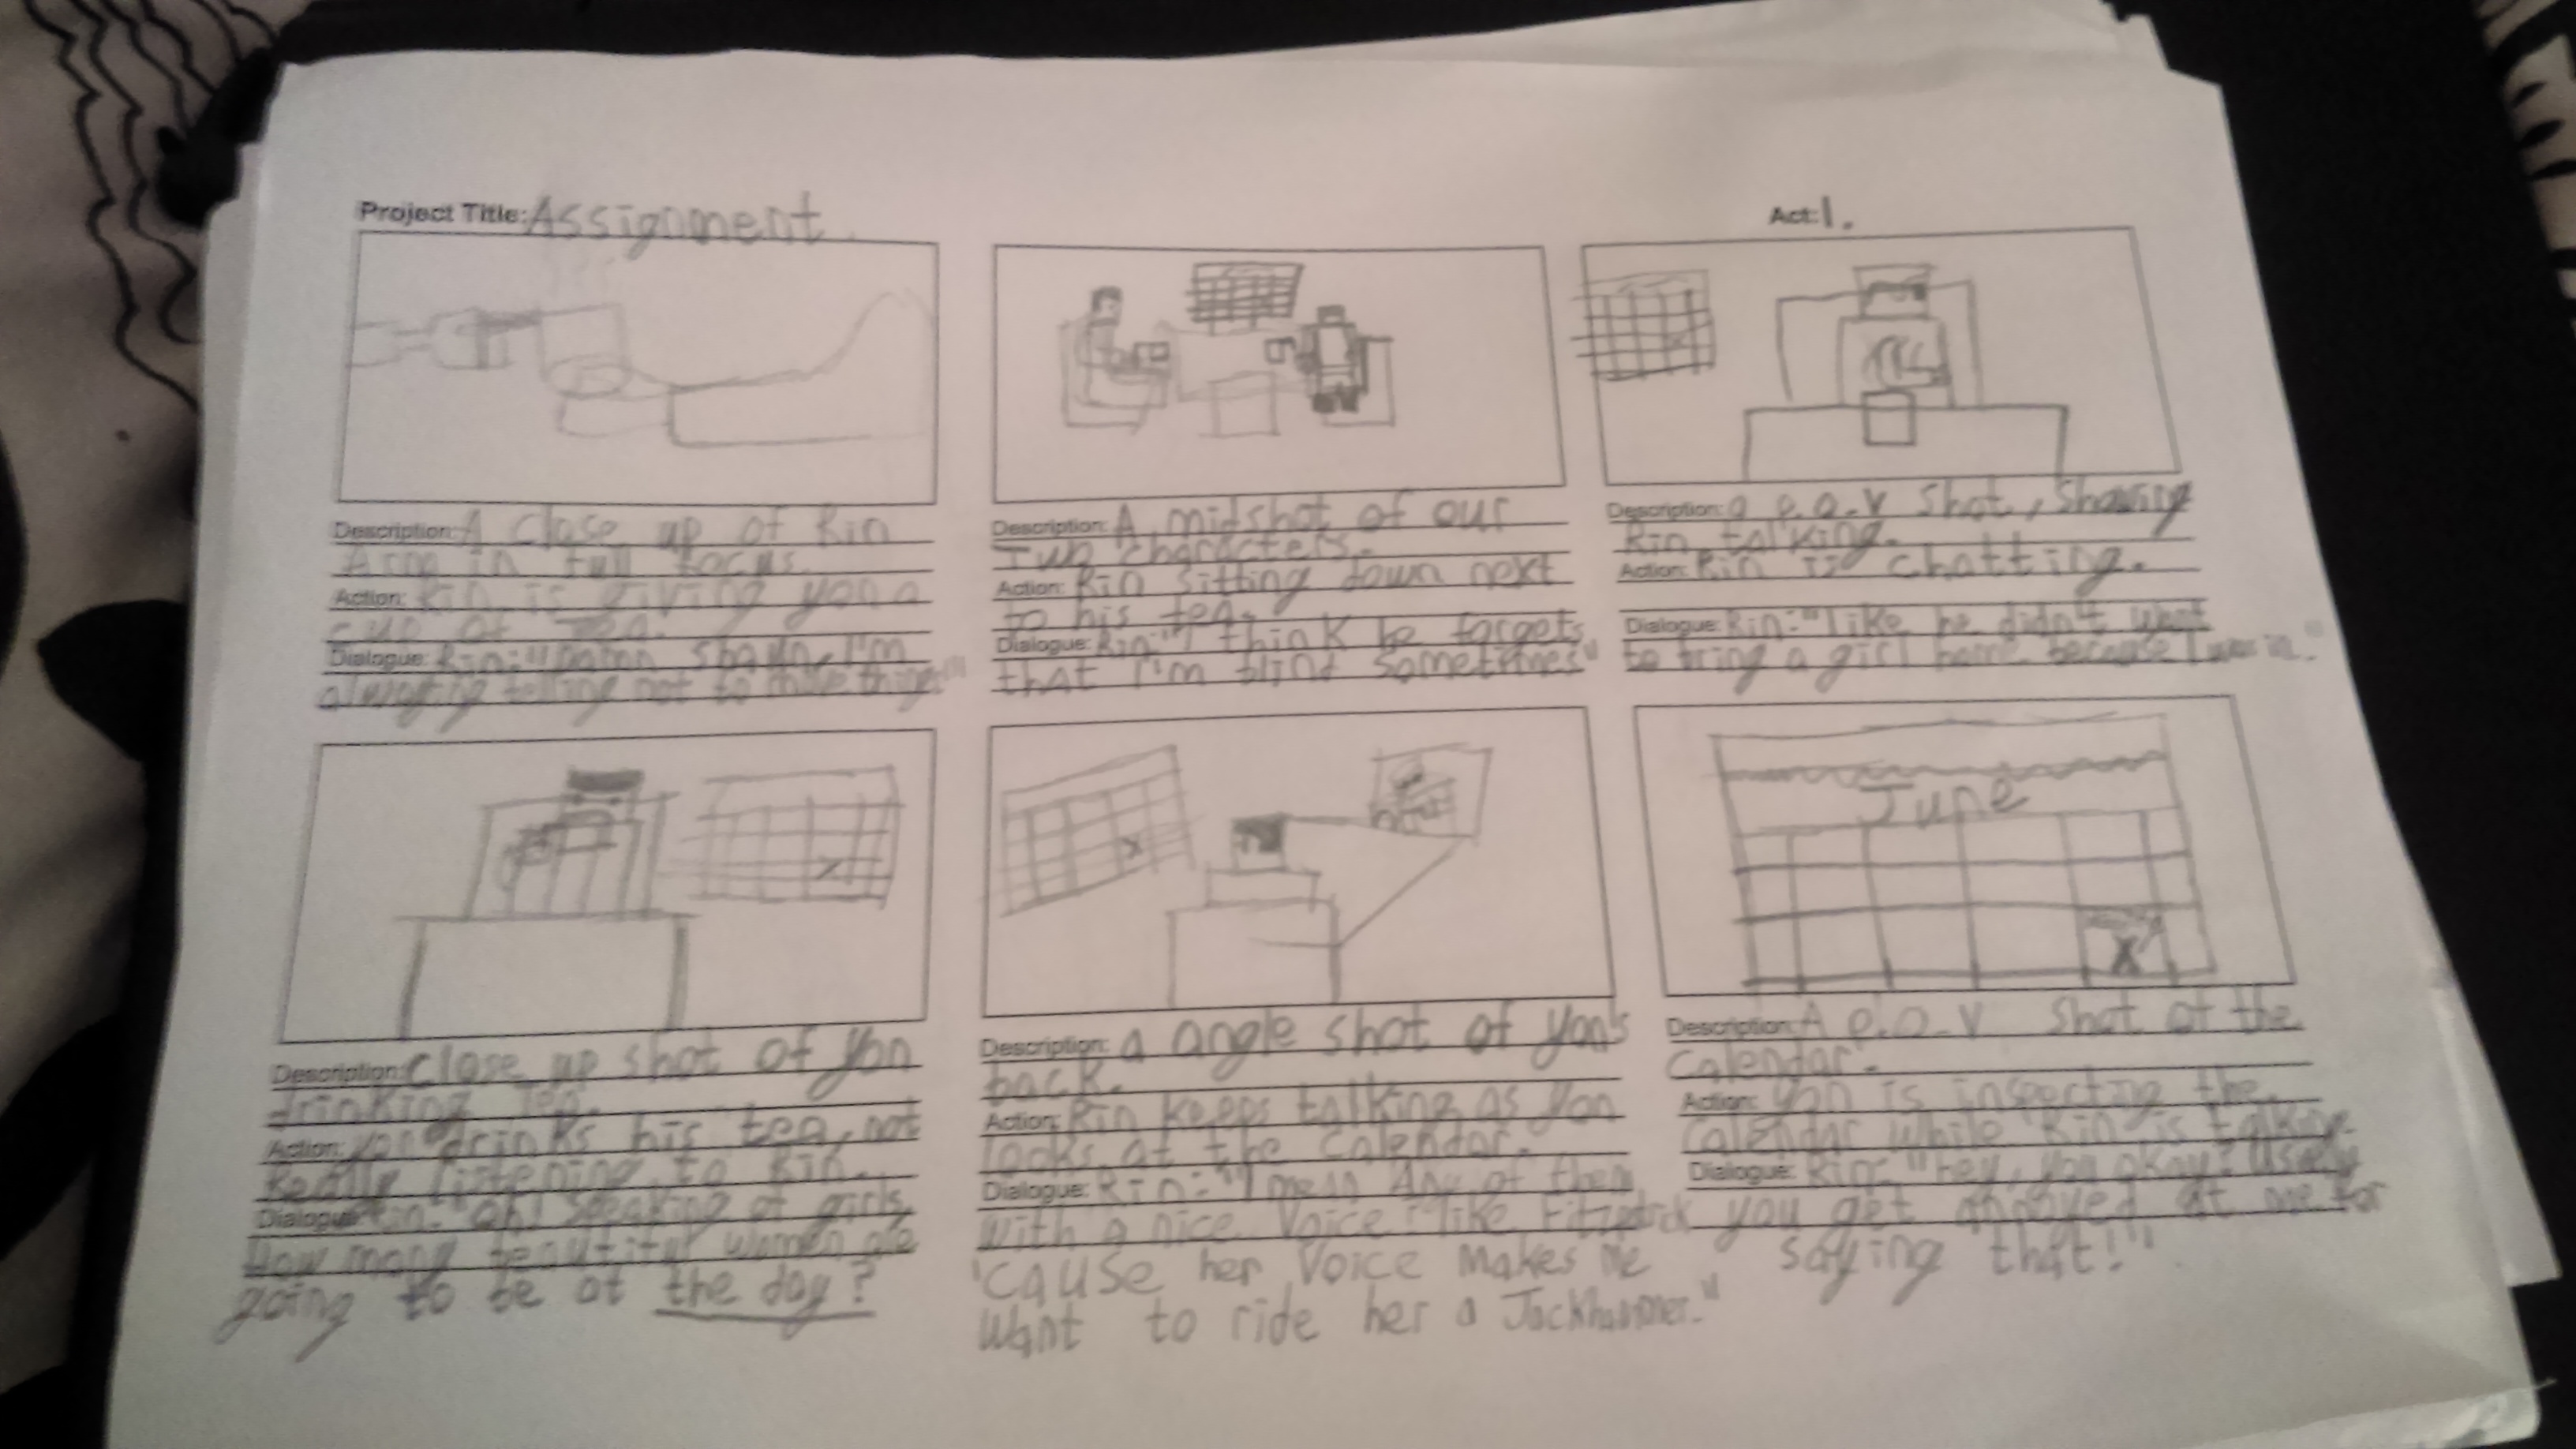 Project Title: Assignment
Act: 1.
Description: A close up of Rin
Arm in full focus.
Action: Rin is giving yon a
cup of Tea.
Dialogue: Rin: "Damn Shaun, I'm
always telling not to move things"
Description: A midshot of our
Two characters.
Action: Rin sitting down next
to his tea.
Dialogue: Rin: "I think he forgets
that I'm blind sometimes"
Description: a P.O.V shot, Showing
Rin talking.
Action: Rin is chatting.
Dialogue: Rin: "like he didn't want
to bring a girl home because I was in."
Description: Close up shot of yon
drinking Tea.
Action: yon drinks his tea, not
Really listening to Rin.
Dialogue: Rin: "Oh! Speaking of girls,
How many beautiful women are
going to be at the day?
Description: a angle shot of yon's
back.
Action: Rin keeps talking as yon
looks at the Calendar.
Dialogue: Rin: "I mean Any of them
with a nice Voice like Fitzpatrick
'cause her Voice makes me
want to ride her a Jackhammer."
June
X
Description: A P.O.V Shot of the
Calendar.
Action: yon is inspecting the
Calendar while Rin is talking.
Dialogue: Rin: "Hey, you okay?
you get annoyed at me for
saying that!"